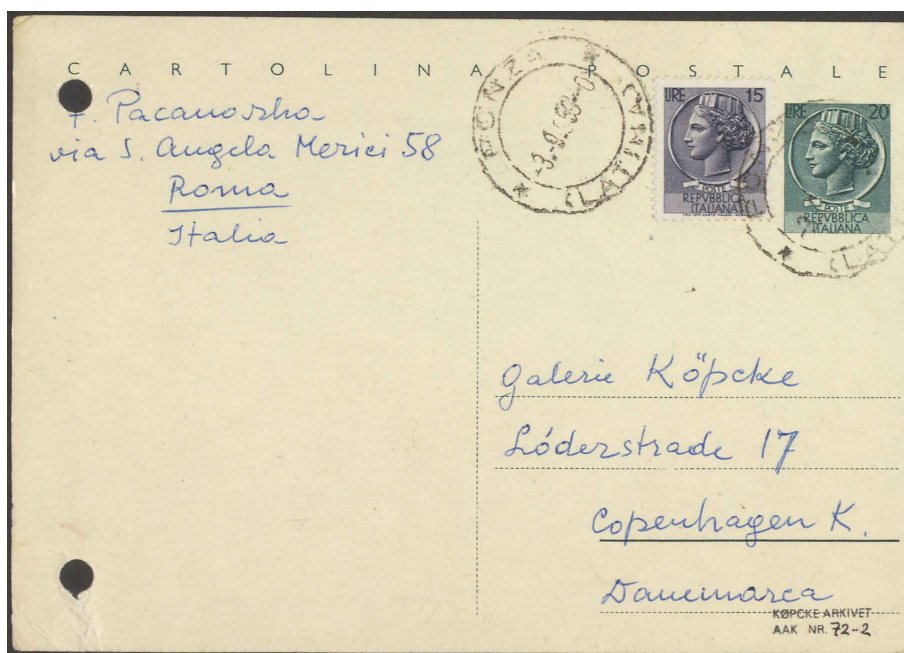 CARTOLINA POSTALE
F. Pacanowska
via S. Angela Merici 58
Roma
Italia
PONZA
(LATINA)
LIRE 15
POSTE
REPVBBLICA
ITALIANA
LIRE 20
POSTE
REPVBBLICA
ITALIANA
(LAT
Galerie Köpcke
Lóderstrade 17
Copenhagen K.
Danemarca
KØPCKE ARKIVET
AAK NR. 72-2